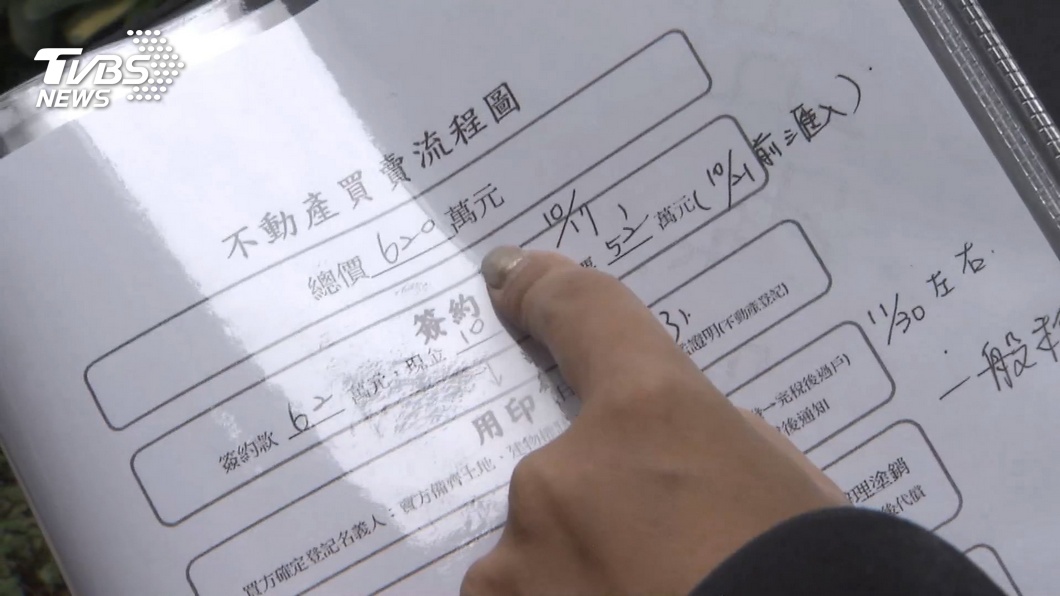 TVBS
NEWS
不動產買賣流程圖
總價620萬元
簽約 10/17
簽約款 62 萬元：現金 10 52 萬元(10/21前匯入)
用印
買方確定登記名義人；賣方備齊土地、建物 證明(不動產登記)
11/30 左右
完稅後過戶)
後通知
一般
理塗銷
後代償